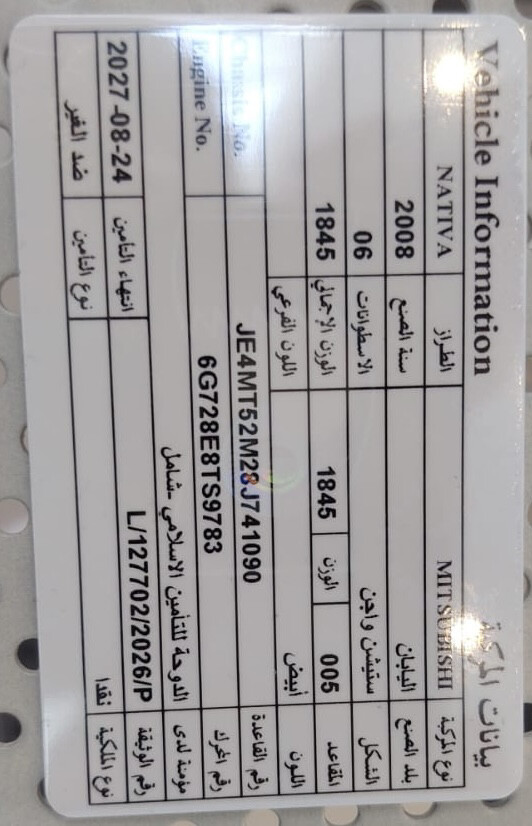 Vehicle Information بيانات المركبة
نوع المركبة MITSUBISHI الطراز NATIVA
بلد الصنع اليابان سنة الصنع 2008
الشكل ستيشن واجن الاسطوانات 06
المقاعد 005 الوزن 1845 الوزن الإجمالي 1845
اللون أبيض اللون الفرعي
رقم القاعدة JE4MT52M28J741090 Chassis No.
رقم المحرك 6G728E8TS9783 Engine No.
مؤمنة لدى الدوحة للتأمين الاسلامي -شامل
رقم الوثيقة L/127702/2026/P انتهاء التامين 2027-08-24
نوع الملكية نقدا نوع التامين ضد الغير